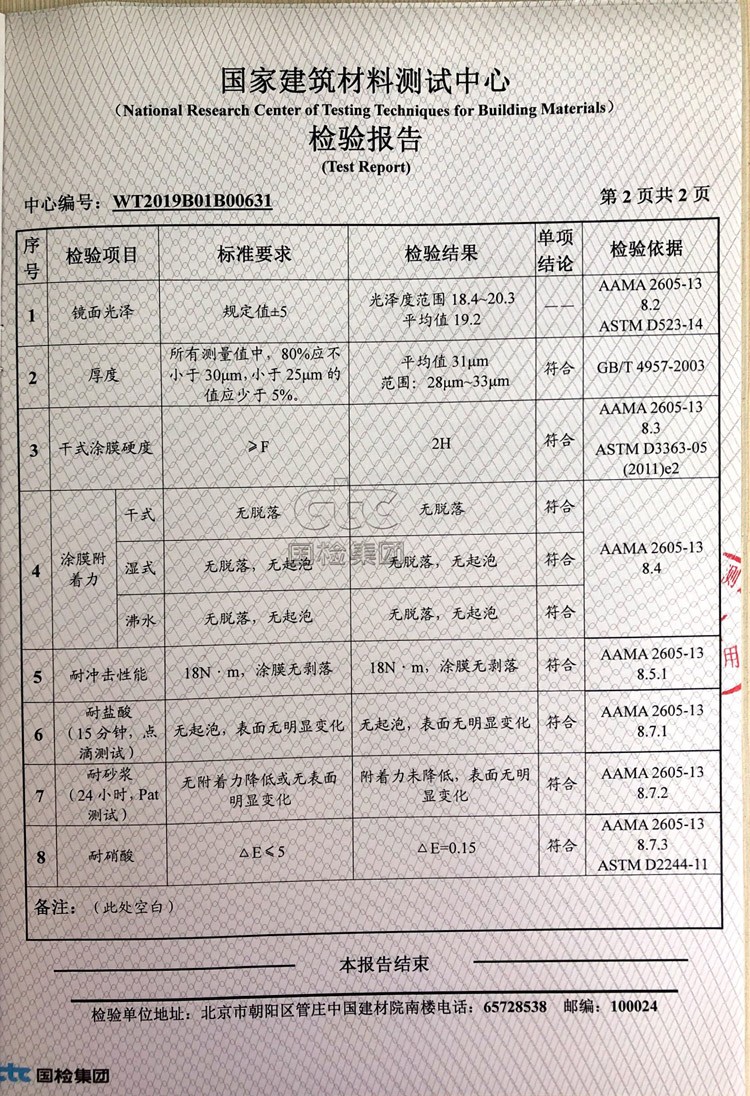 国家建筑材料测试中心
（National Research Center of Testing Techniques for Building Materials）
检验报告
(Test Report)
中心编号：WT2019B01B00631
第 2 页共 2 页
序号 检验项目 标准要求 检验结果 单项结论 检验依据
1 镜面光泽 规定值±5 光泽度范围 18.4~20.3 平均值 19.2 —— AAMA 2605-13 8.2 ASTM D523-14
2 厚度 所有测量值中，80%应不小于 30μm，小于 25μm 的值应少于 5%。 平均值 31μm 范围：28μm~33μm 符合 GB/T 4957-2003
3 干式涂膜硬度 ≥F 2H 符合 AAMA 2605-13 8.3 ASTM D3363-05 (2011)e2
4 涂膜附着力 干式 无脱落 无脱落 符合 AAMA 2605-13 8.4
湿式 无脱落，无起泡 无脱落，无起泡 符合
沸水 无脱落，无起泡 无脱落，无起泡 符合
5 耐冲击性能 18N·m，涂膜无剥落 18N·m，涂膜无剥落 符合 AAMA 2605-13 8.5.1
6 耐盐酸（15 分钟，点滴测试） 无起泡，表面无明显变化 无起泡，表面无明显变化 符合 AAMA 2605-13 8.7.1
7 耐砂浆（24 小时，Pat 测试） 无附着力降低或无表面明显变化 附着力未降低，表面无明显变化 符合 AAMA 2605-13 8.7.2
8 耐硝酸 △E≤5 △E=0.15 符合 AAMA 2605-13 8.7.3 ASTM D2244-11
备注：（此处空白）
ctc
国检集团
测
用
本报告结束
检验单位地址：北京市朝阳区管庄中国建材院南楼电话：65728538 邮编：100024
ctc 国检集团